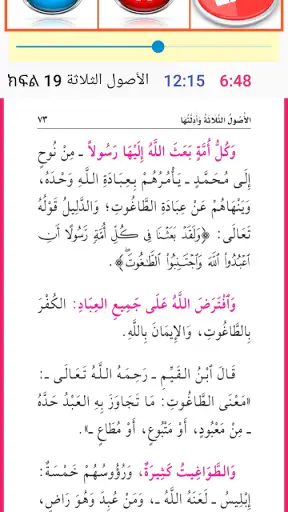 ክፍል 19 الأصول الثلاثة 12:15 6:48
الأُصُولُ الثَّلَاثَةُ وَأَدِلَّتُهَا ٧٣
وَكُلُّ أُمَّةٍ بَعَثَ اللَّهُ إِلَيْهَا رَسُولاً ـ مِنْ نُوحٍ
إِلَى مُحَمَّدٍ ـ يَأْمُرُهُمْ بِعِبَادَةِ اللَّهِ وَحْدَهُ،
وَيَنْهَاهُمْ عَنْ عِبَادَةِ الطَّاغُوتِ؛ وَالدَّلِيلُ قَوْلُهُ
تَعَالَى: ﴿وَلَقَدْ بَعَثْنَا فِي كُلِّ أُمَّةٍ رَّسُولًا أَنِ
اعْبُدُوا اللَّهَ وَاجْتَنِبُوا الطَّاغُوتَ﴾.
وَافْتَرَضَ اللَّهُ عَلَى جَمِيعِ العِبَادِ: الكُفْرَ
بِالطَّاغُوتِ، وَالإِيمَانَ بِاللَّهِ.
قَالَ ابْنُ القَيِّمِ ـ رَحِمَهُ اللَّهُ تَعَالَى ـ:
«مَعْنَى الطَّاغُوتِ: مَا تَجَاوَزَ بِهِ العَبْدُ حَدَّهُ
ـ مِنْ مَعْبُودٍ، أَوْ مَتْبُوعٍ، أَوْ مُطَاعٍ ـ».
وَالطَّوَاغِيتُ كَثِيرَةٌ، وَرُؤُوسُهُمْ خَمْسَةٌ:
إِبْلِيسُ ـ لَعَنَهُ اللَّهُ ـ، وَمَنْ عُبِدَ وَهُوَ رَاضٍ،